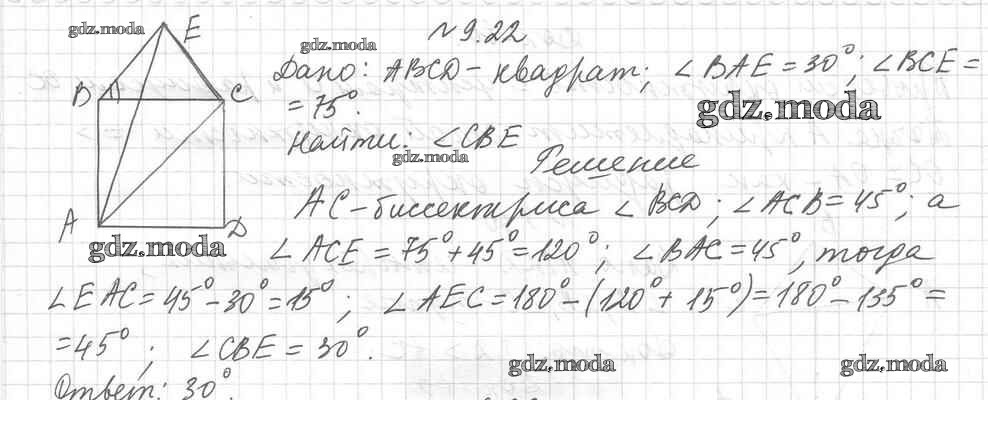 gdz.moda
E
№ 9.22
gdz.moda
Дано: ABCD - квадрат; ∠BAE = 30°; ∠BCE =
= 75°.
gdz.moda
B
C
Найти: ∠CBE
gdz.moda
Решение
AC - биссектриса ∠BCD; ∠ACB = 45°; а
A
D
gdz.moda
∠ACE = 75° + 45° = 120°; ∠BAC = 45°, тогда
∠EAC = 45° - 30° = 15°; ∠AEC = 180° - (120° + 15°) = 180° - 135° =
= 45°; ∠CBE = 30°.
gdz.moda
gdz.moda
Ответ: 30°.